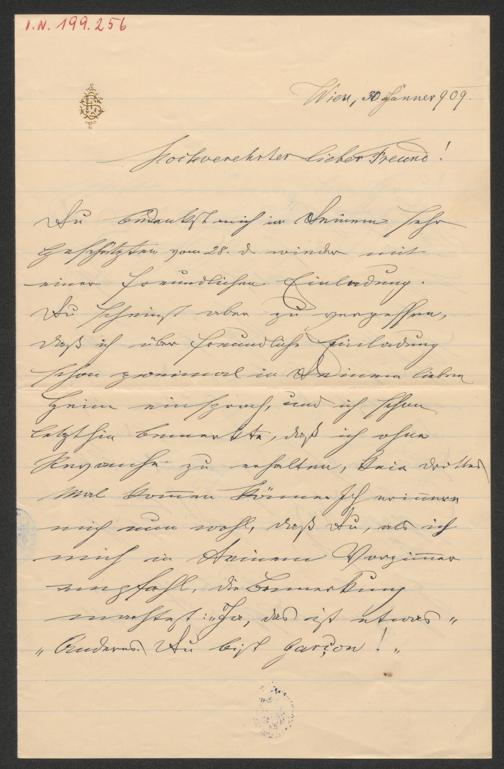 I.N. 199.256
Wien, 30 Jänner 909.
Hochverehrter lieber Freund!
Du bedenkst mich in Deinem sehr
geschätzten vom 28. d. wieder mit
einer freundlichen Einladung.
Du scheinst aber zu vergessen,
daß ich über freundliche Einladung
schon zweimal in Deinem lieben
Heim einsprach, und ich schon
letzthin bemerkte, daß ich ohne
Revanche zu erhalten, kein drittes
Mal kommen könne. Ich erinnere
mich nun wohl, daß Du, als ich
mich in Deinem Vorzimmer
empfahl, die Bemerkung
machtest: "Ja, das ist etwas"
"Anderes. Du bist garçon!"